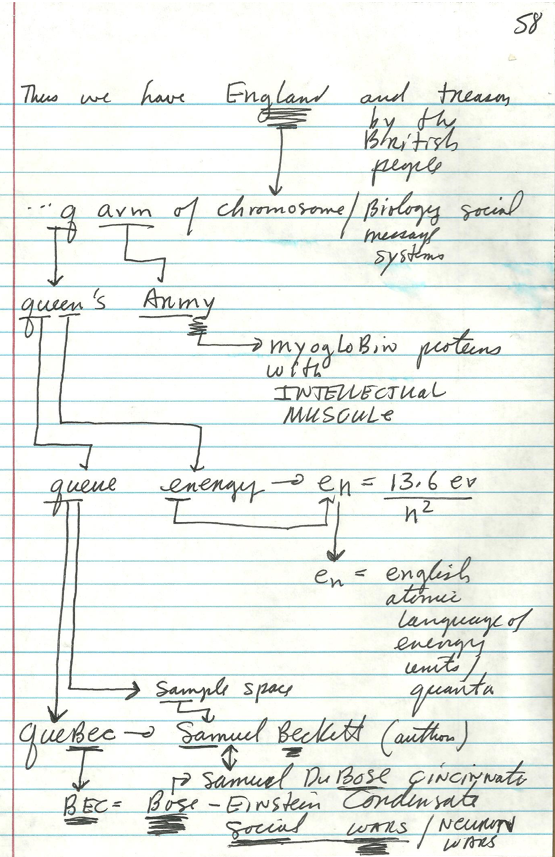 58
Thus we have England and treason
by the
British
people
... q arm of chromosome/Biology social
message
systems
queen's Army
→ myogloBin proteins
with
INTELLECTUAL
MUSCULE
queue energy → en = 13.6 ev
n²
en = english
atomic
language of
energy
units/
quanta
→ sample space
queBec → Samuel Beckett (author)
Samuel DuBose Cincinnati
BEC = Bose-Einstein Condensate
social wars / NEURON
WARS